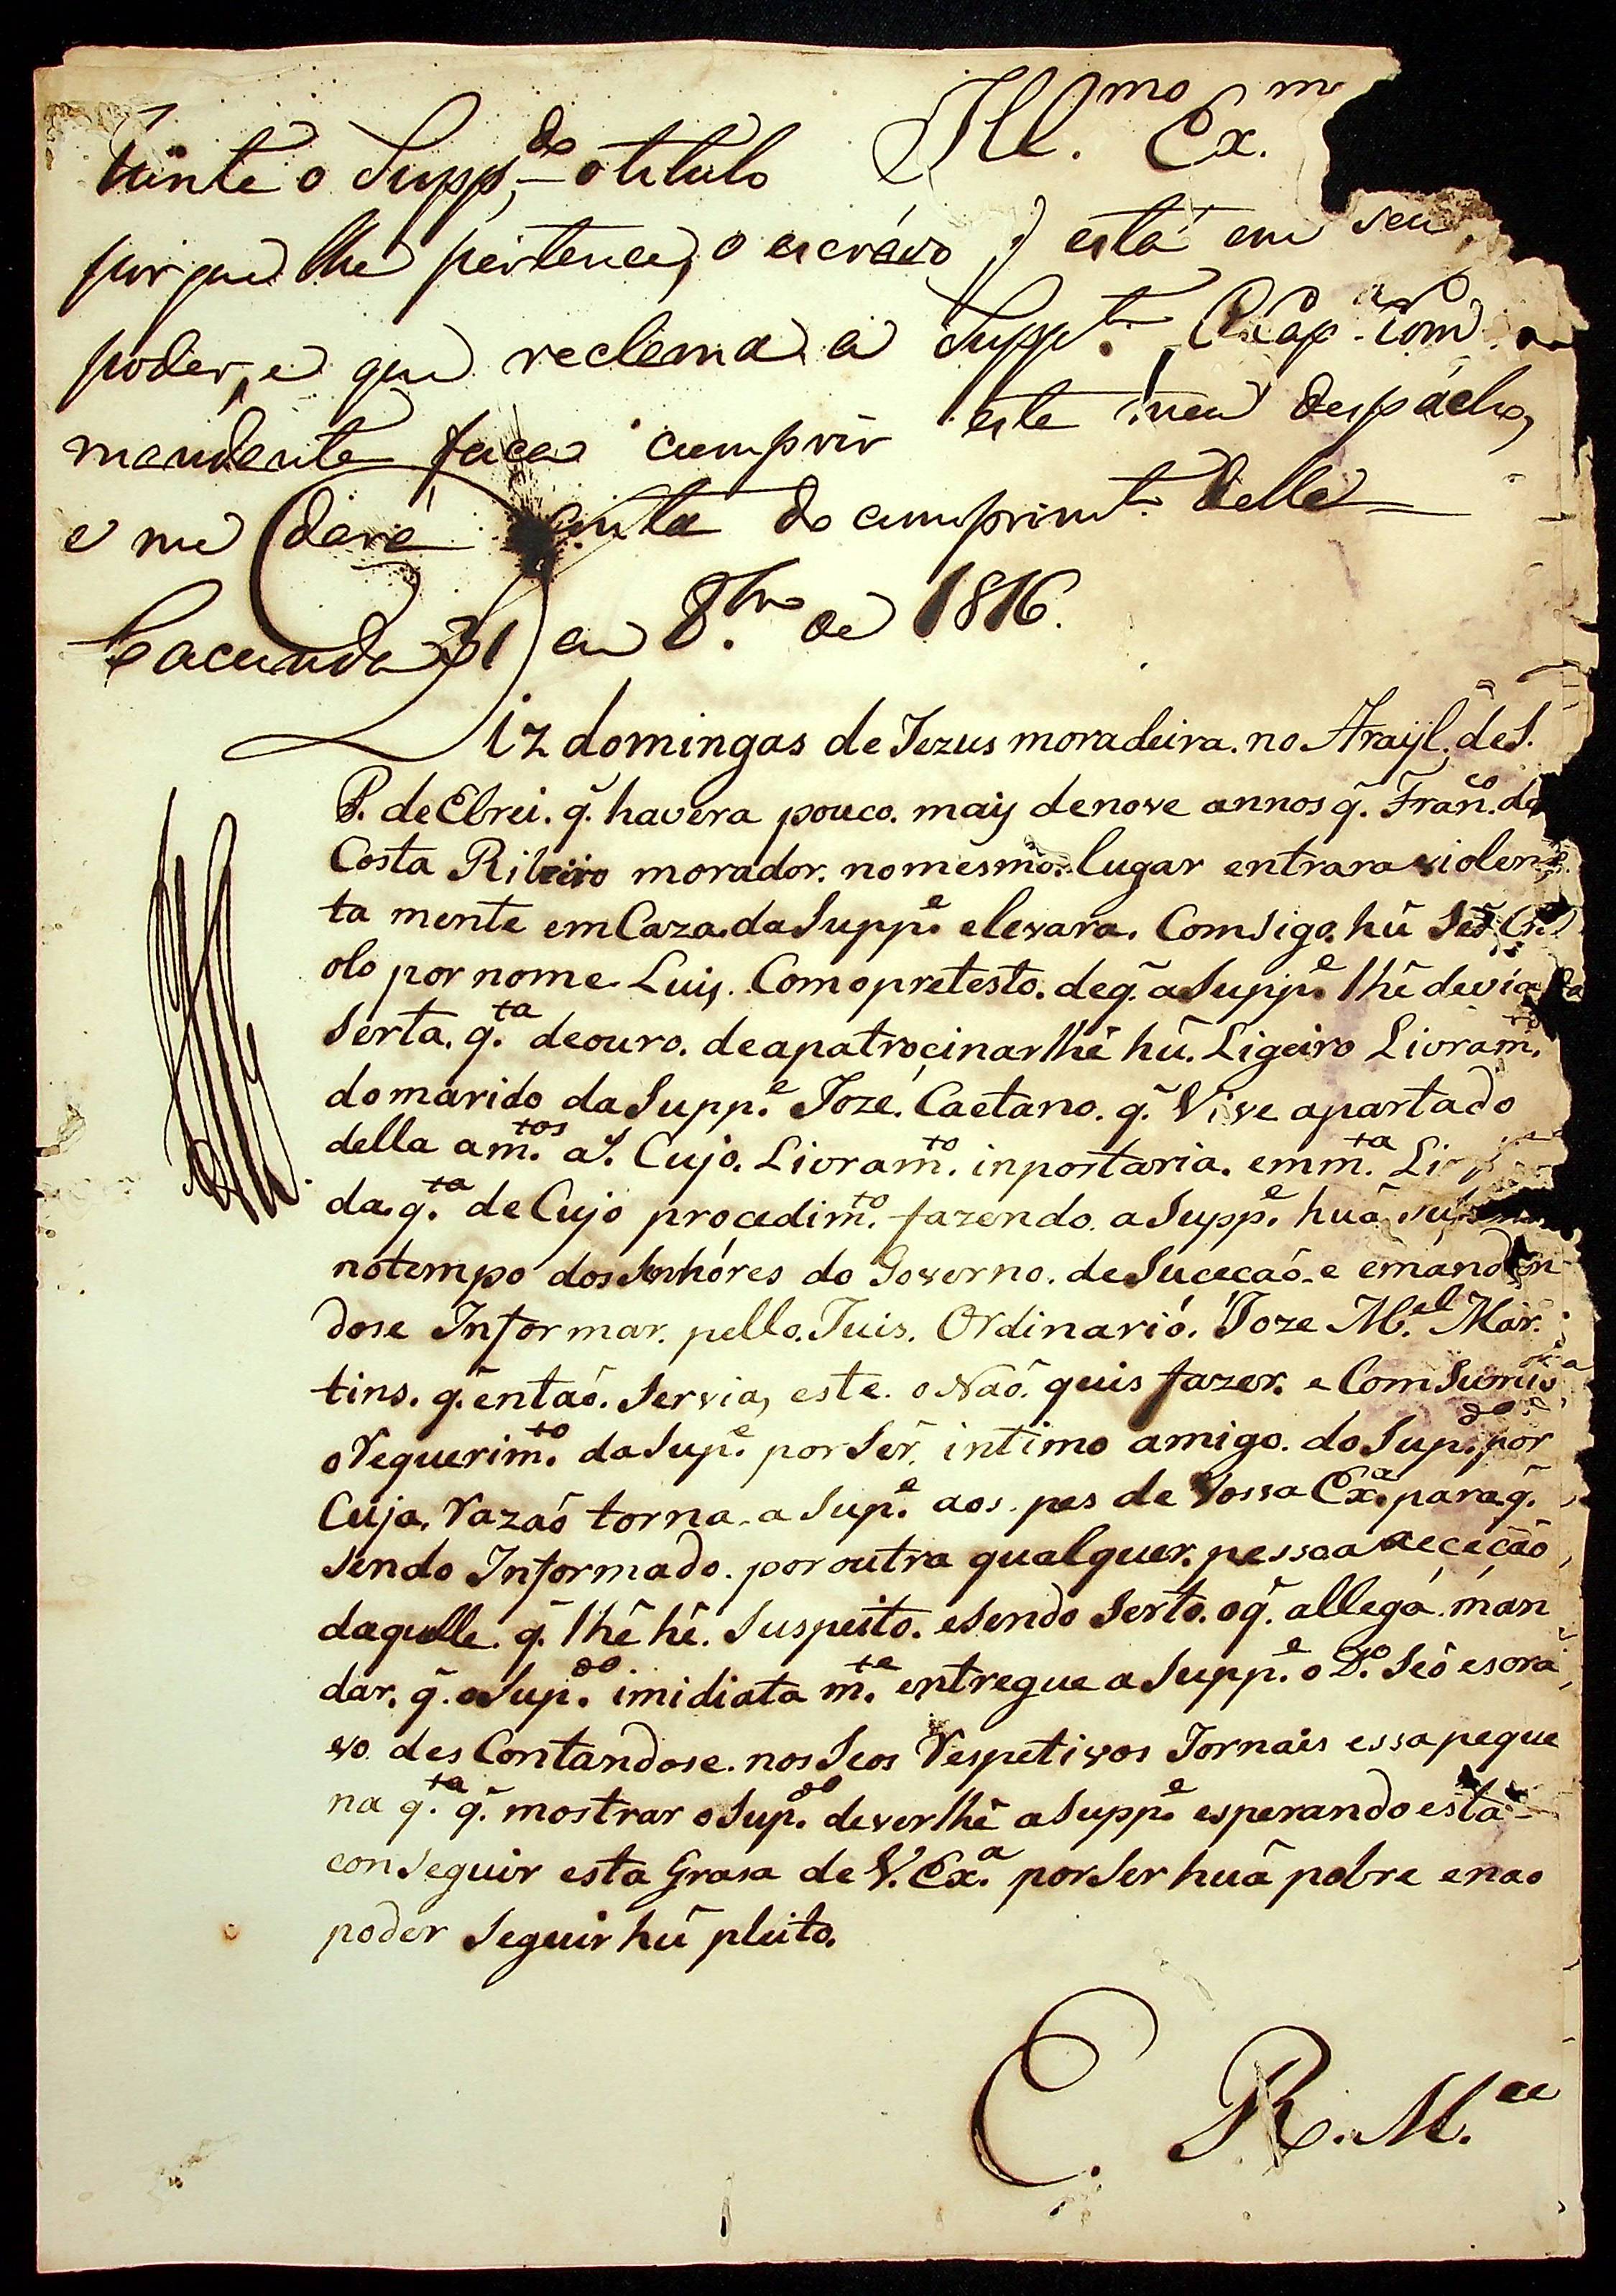 Ill.mo Ex.m
o Supp.do o titulo
por que lhe pertence, o escrávo q̃ está em seu
poder, e que reclama a Supp.te O Cap.am Com
mandante faça cumprir este meu despacho,
e me dará conta do cumprimt.o delle
Cacunda 31 de 8.bro de 1816.
Diz domingas de Jezus moradeira. no Arayl. de S.
P. de Elrei. q̃. havera pouco. mais de nove annos q̃. Fran.co da
Costa Ribeiro morador. no mesmo. lugar entrara violen
ta mente em Caza. da Supp.e e levara. Comsigo. hũ Seô Cri
olo por nome Luis. Com o pretesto. de q̃. a Supp.e lhê devia
Serta. q.ta de ouro. de apatroçinar lhê hũ. Ligeiro Livram.to
do marido da Supp.e Jozé. Caetano. q̃. Vive apartado
della a m.tos a.s Cujo. Livram.to inportaria. em m.ta
da. q.ta de Cujo procedim.to fazendo. a Supp.e huã
no tempo dos Senhóres do Governo. de Suceçaõ. e emandan
dose Informar. pello. Juis. Ordinarió. Joze M.el Mar.
tins. q̃. entaõ. Servia, este. o Naõ. quis fazer. e Com Sumio
o Requerim.to da Sup.e por Ser. intimo amigo. do Sup.do por
Cuja. Razaõ torna. a Sup.e aos. pes de Vossa Ex.a para q̃.
sendo Informado. por outra qualquer. pessoa a eceçaõ
daquelle. q̃. lhê hê. Suspeito. e Sendo Serto. o q̃. allegá. man
dar. q̃. o Sup.do imidiata m.te entregue a Supp.e o D.o Seô escra
vo des Contandose. nos Seos Respetivos Jornais essa peque
na q.ta q̃. mostrar o Sup.do dever lhê a Supp.e esperando esta
conseguir esta Grasa de V. Ex.a por Ser huã pobre e nao
poder Seguir hũ pleito.
E. R. M.ce